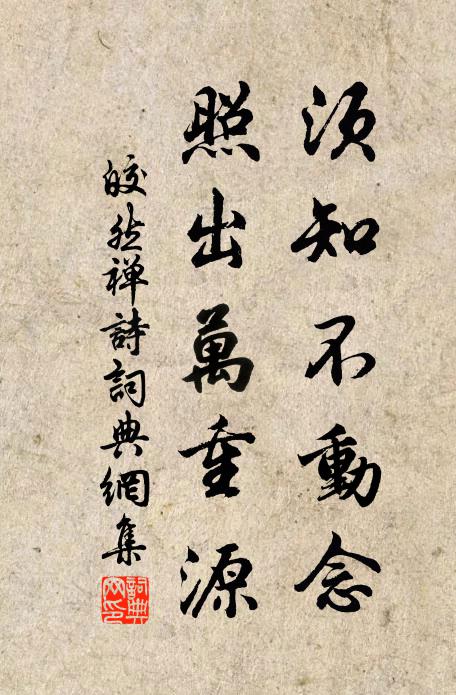 須知不動念
照出萬重源
皎然禅詩詞典網集
詞典網印